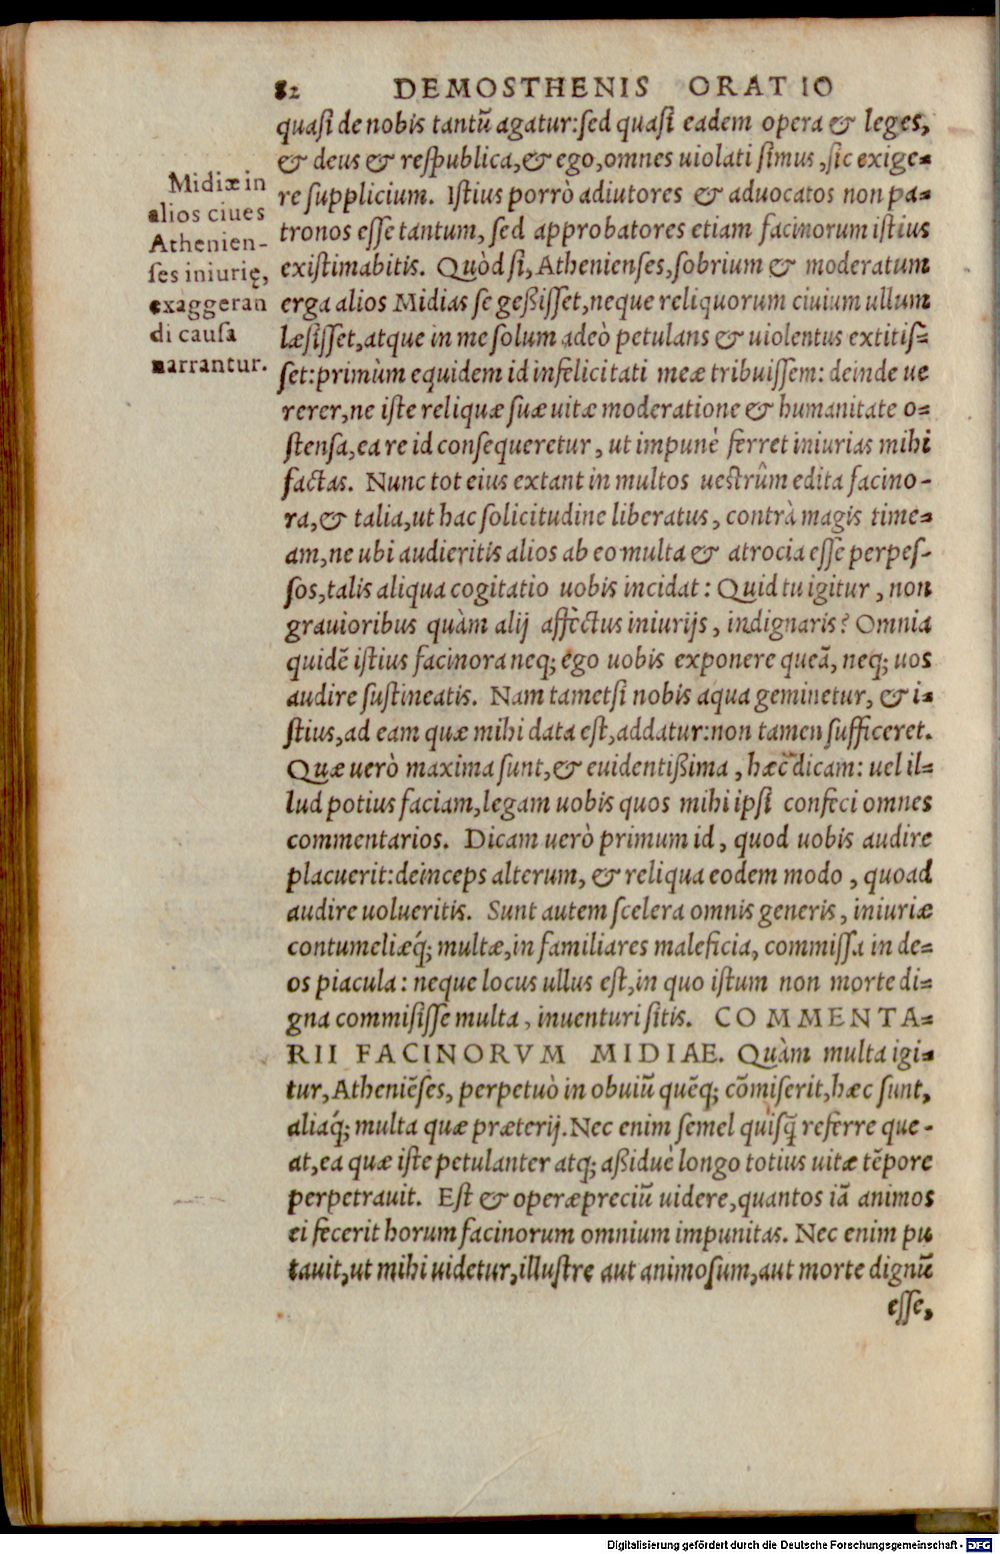 82 DEMOSTHENIS ORATIO
quaſi de nobis tantũ agatur: ſed quaſi eadem opera & leges,
& deus & reſpublica, & ego, omnes uiolati ſimus, ſic exige-
re ſupplicium. Iſtius porrò adiutores & aduocatos non pa-
tronos eſſe tantum, ſed approbatores etiam facinorum iſtius
exiſtimabitis. Quòd ſi, Athenienſes, ſobrium & moderatum
erga alios Midias ſe geßiſſet, neque reliquorum ciuium ullum
læſiſſet, atque in me ſolum adeò petulans & uiolentus extitiſ-
ſet: primùm equidem id infelicitati meæ tribuiſſem: deinde ue
rerer, ne iſte reliquæ ſuæ uitæ moderatione & humanitate o-
ſtenſa, ea re id conſequeretur, ut impunè ferret iniurias mihi
factas. Nunc tot eius extant in multos ueſtrûm edita facino-
ra, & talia, ut hac ſolicitudine liberatus, contrà magis time-
am, ne ubi audieritis alios ab eo multa & atrocia eſſe perpeſ-
ſos, talis aliqua cogitatio uobis incidat: Quid tu igitur, non
grauioribus quàm alij affectus iniurijs, indignaris? Omnia
quidẽ iſtius facinora neq; ego uobis exponere queã, neq; uos
audire ſuſtineatis. Nam tametſi nobis aqua geminetur, & i-
ſtius, ad eam quæ mihi data eſt, addatur: non tamen ſufficeret.
Quæ uerò maxima ſunt, & euidentißima, hæc dicam: uel il-
lud potius faciam, legam uobis quos mihi ipſi confeci omnes
commentarios. Dicam uerò primum id, quod uobis audire
placuerit: deinceps alterum, & reliqua eodem modo, quoad
audire uolueritis. Sunt autem ſcelera omnis generis, iniuriæ
contumeliæq́; multæ, in familiares maleficia, commiſſa in de-
os piacula: neque locus ullus eſt, in quo iſtum non morte di-
gna commiſiſſe multa, inuenturi ſitis. COMMENTA-
RII FACINORVM MIDIAE. Quàm multa igi-
tur, Atheniẽſes, perpetuò in obuiũ quẽq; cõmiſerit, hæc ſunt,
aliaq́; multa quæ præterij. Nec enim ſemel quiſq̃ referre que-
at, ea quæ iſte petulanter atq; aßiduè longo totius uitæ tẽpore
perpetrauit. Eſt & operæpreciũ uidere, quantos iã animos
ei fecerit horum facinorum omnium impunitas. Nec enim pu
tauit, ut mihi uidetur, illuſtre aut animoſum, aut morte dignũ
eſſe,
Midiæ in
alios ciues
Athenien-
ſes iniurię,
exaggeran
di cauſa
narrantur.
Digitalisierung gefördert durch die Deutsche Forschungsgemeinschaft - DFG